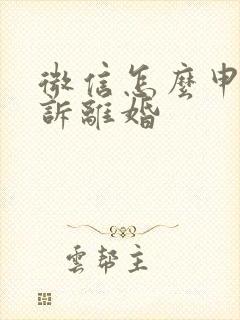 微信怎麼申
訴離婚
雲幫主